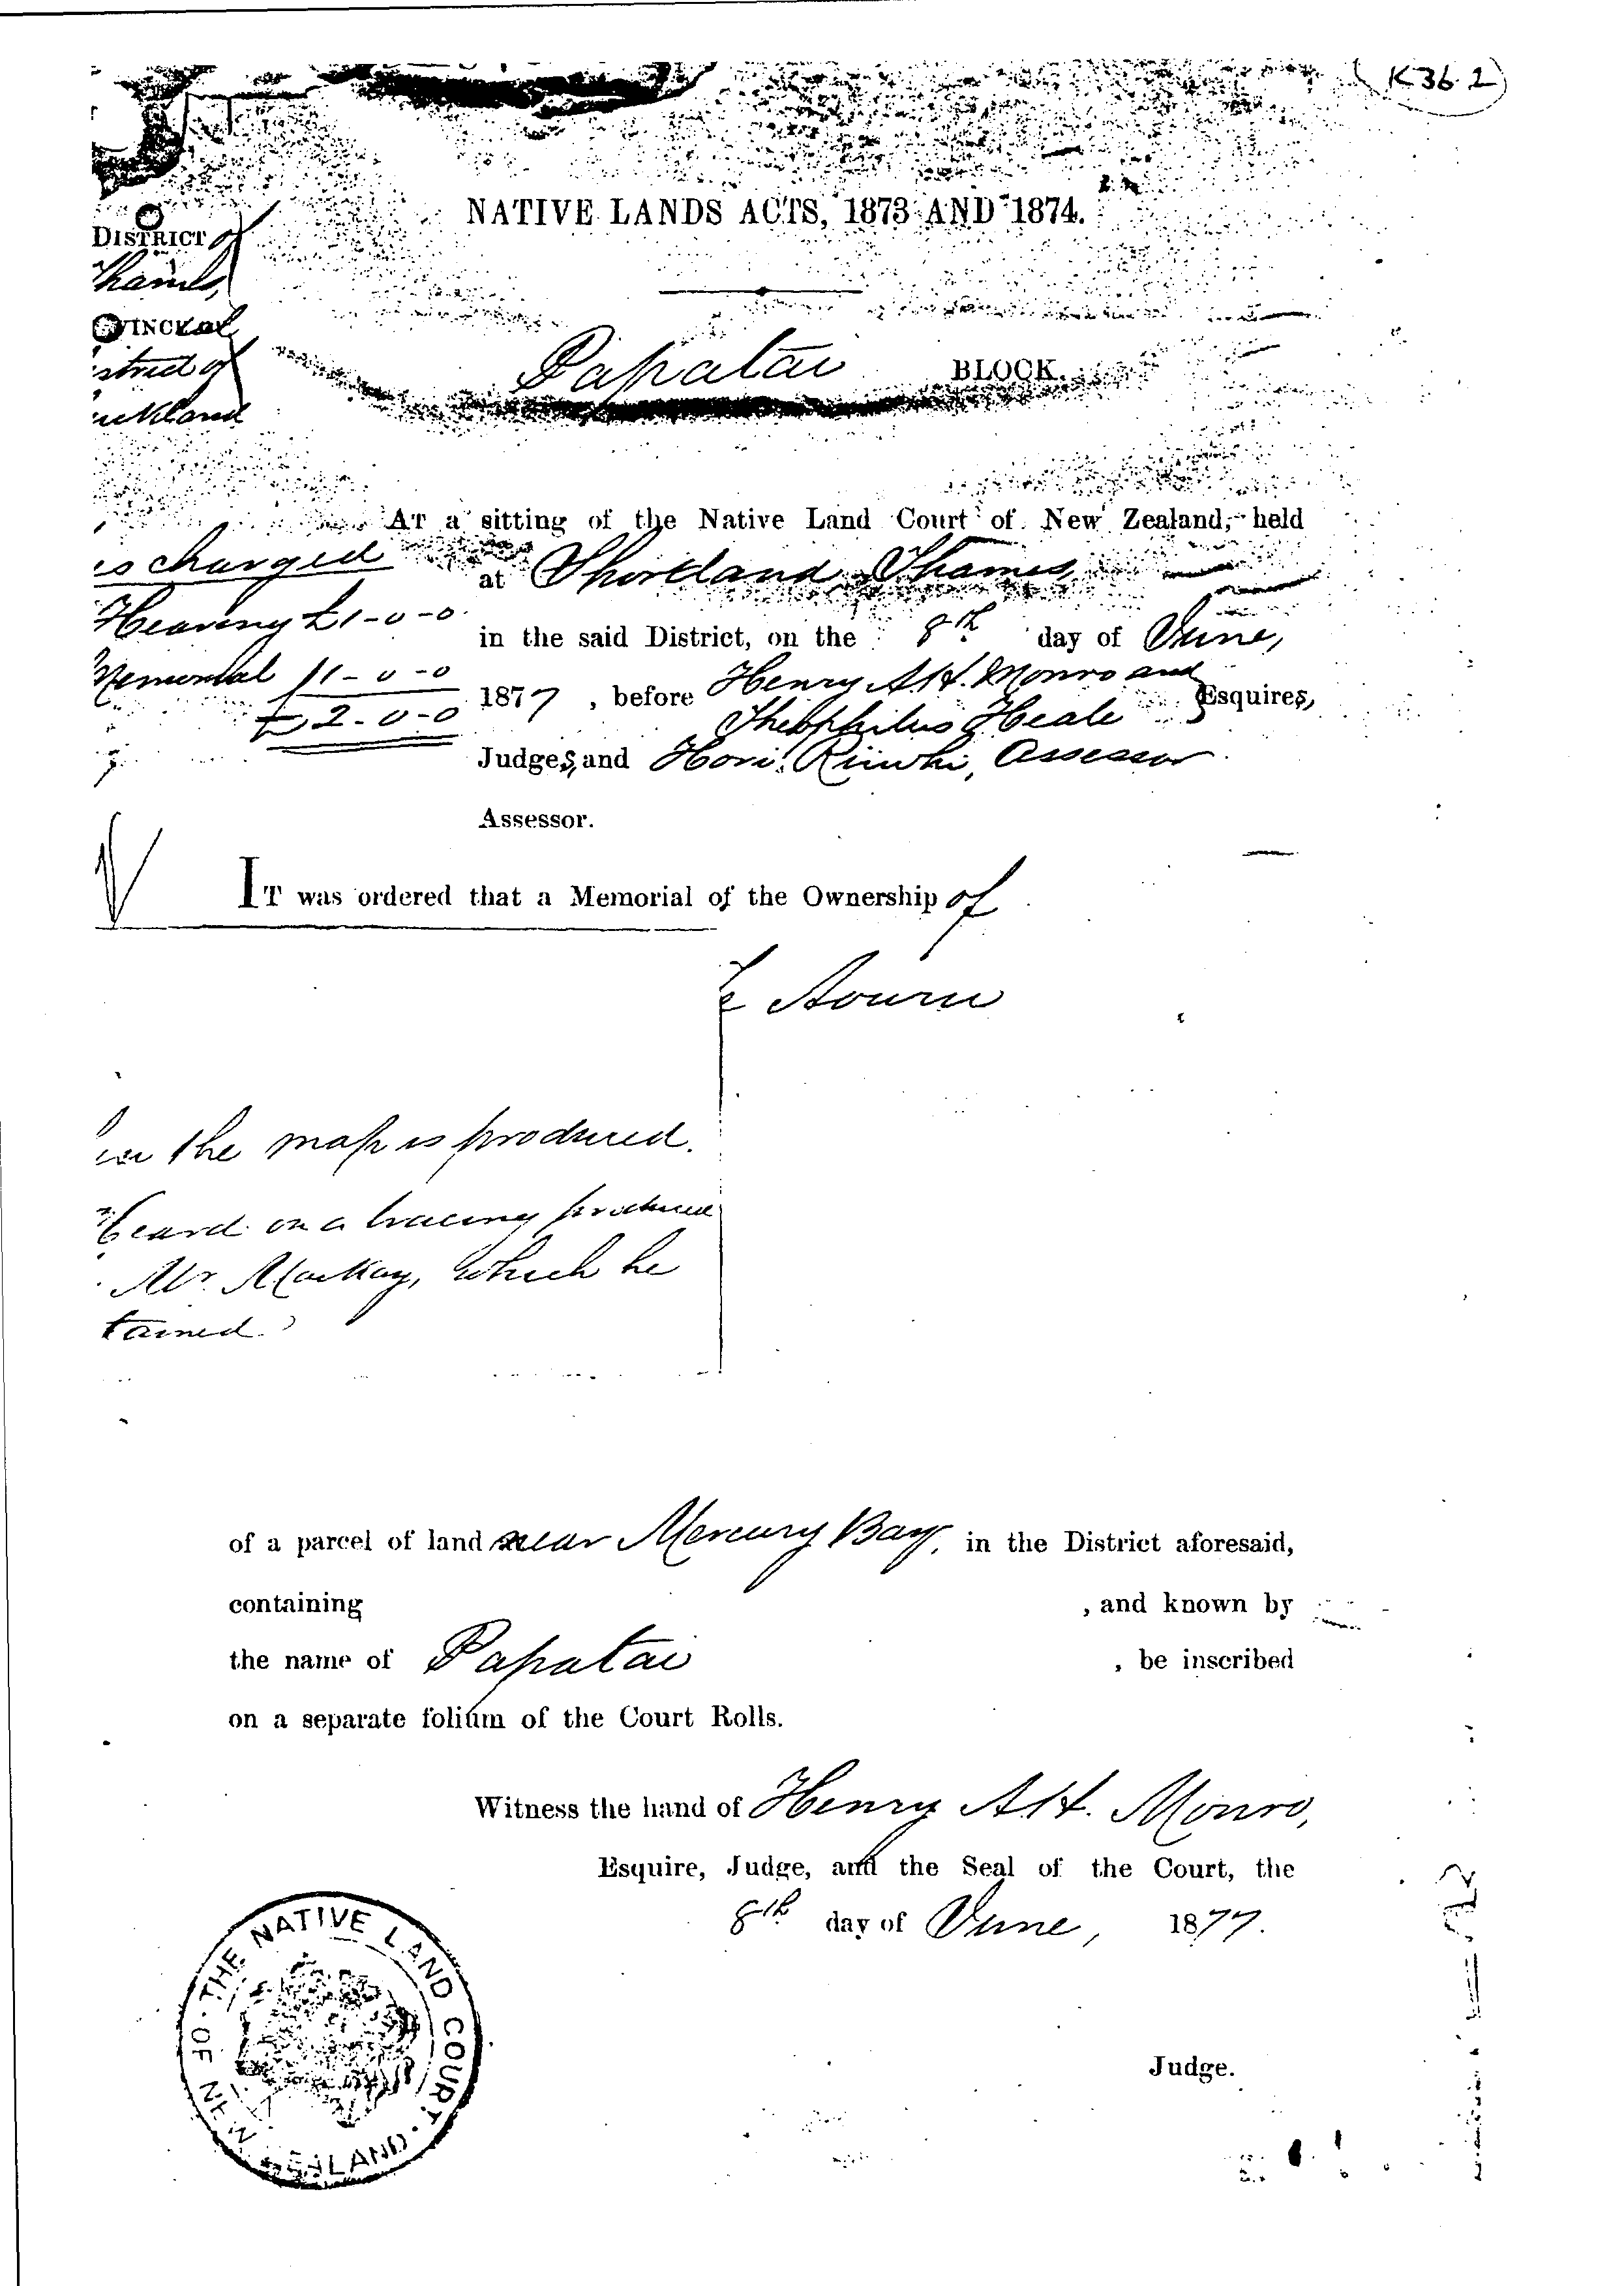 K36.2
NATIVE LANDS ACTS, 1873 AND 1874.
DISTRICT of
Thames,
VINCIAL
strict of
uckland
Papatai BLOCK.
AT a sitting of the Native Land Court of New Zealand, held
es charged
at Shortland, Thames,
Hearing £1-0-0
in the said District, on the 8th day of June,
Memorial 1-0-0
£2-0-0
1877, before Henry A H. Monro and
Theophilus Heale Esquires,
Judges, and Hori Riiwhi, Assessor
Assessor.
IT was ordered that a Memorial of the Ownership of
Te Aouru
the map is produced.
heard on a tracing produced
Mr. Mackay, which he
tained.
of a parcel of land near Mercury Bay, in the District aforesaid,
containing , and known by
the name of Papatai , be inscribed
on a separate folium of the Court Rolls.
Witness the hand of Henry A H. Monro,
Esquire, Judge, and the Seal of the Court, the
8th day of June, 1877.
THE NATIVE LAND COURT OF NEW ZEALAND
Judge.